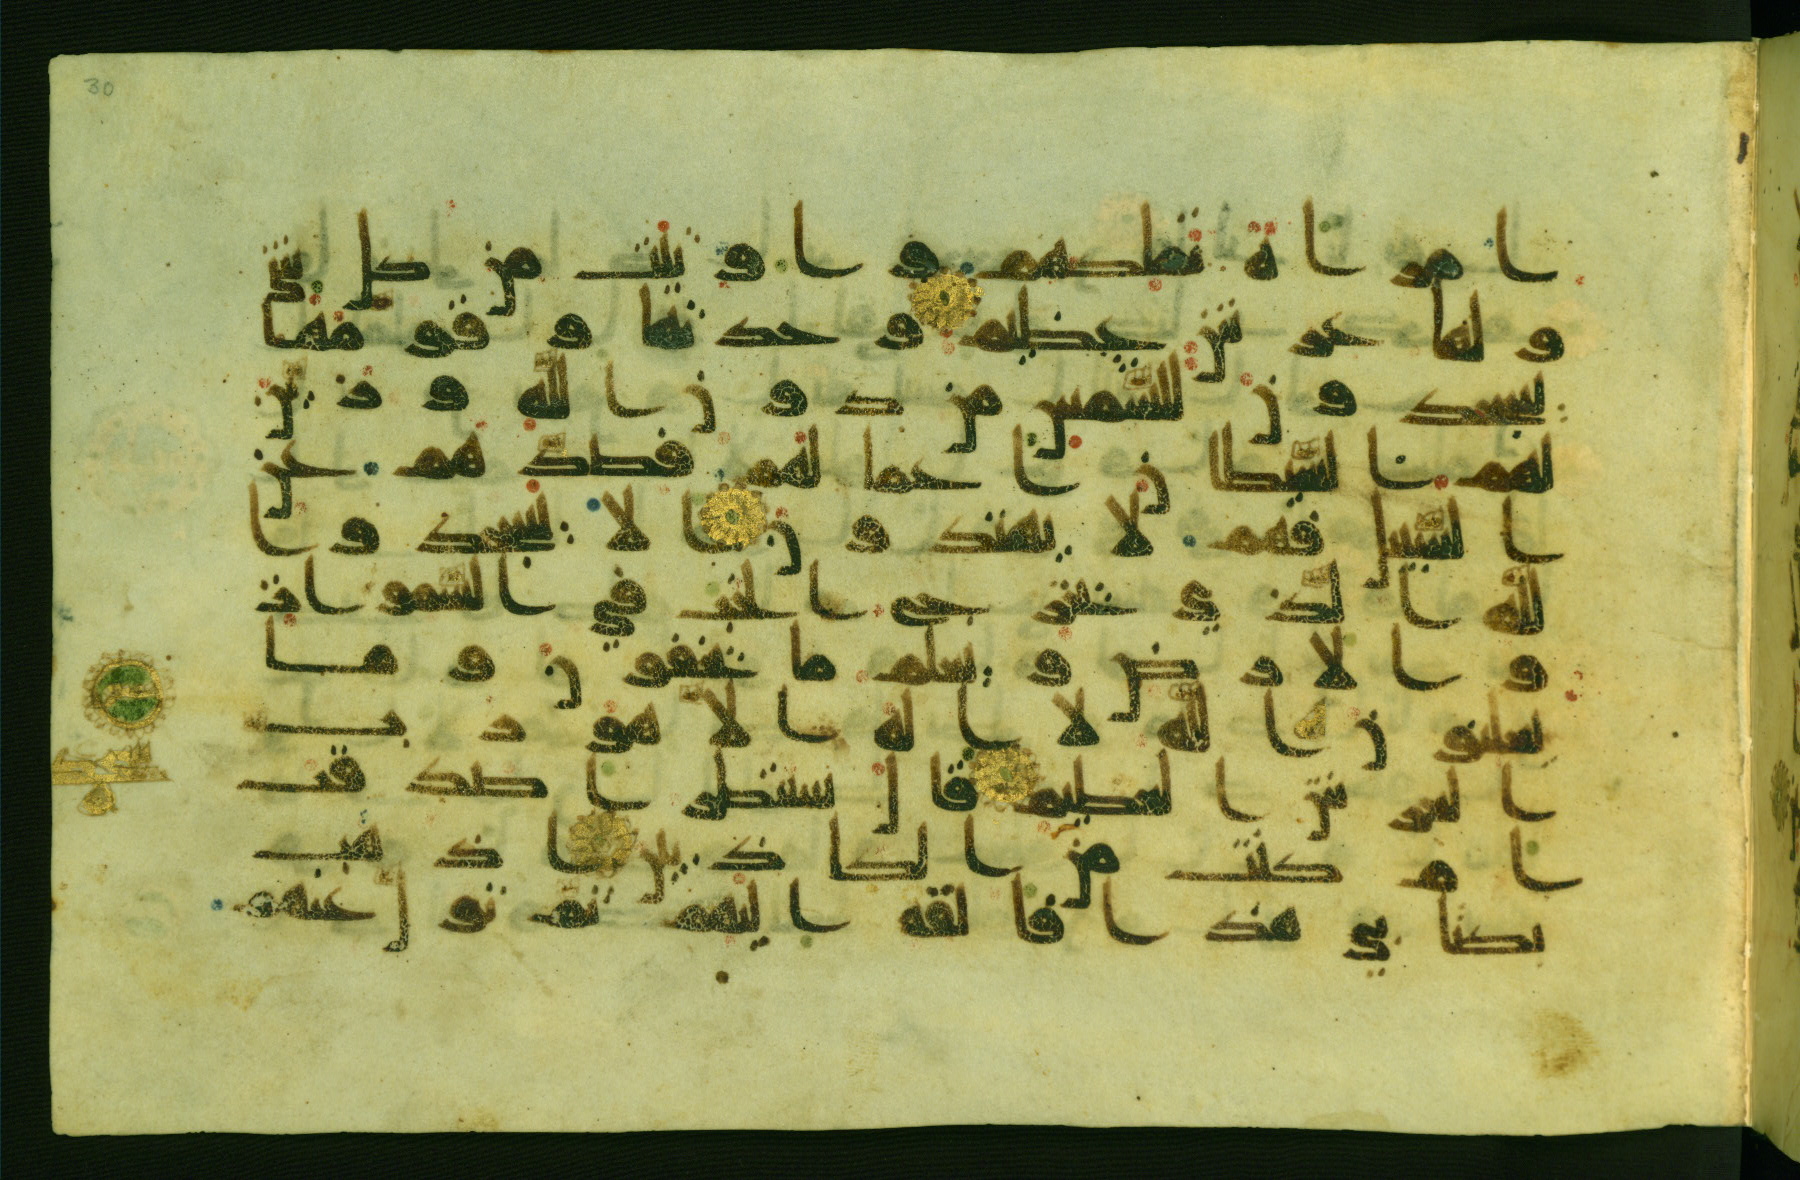 30
امراة تملكهم و اوتيت من كل شى
و لها عرش عظيم وجدتها و قومها
يسجدون للشمس من دون الله و زين
لهم الشيطان اعمالهم فصدهم عن
السبيل فهم لا يهتدون الا يسجدوا
لله الذي يخرج الخب في السموات
و الارض و يعلم ما تخفون و ما
تعلنون الله لا اله الا هو رب
العرش العظيم قال سننظر اصدقت
ام كنت من الكاذبين اذهب
بكتابي هذا فالقه اليهم ثم تول عنهم